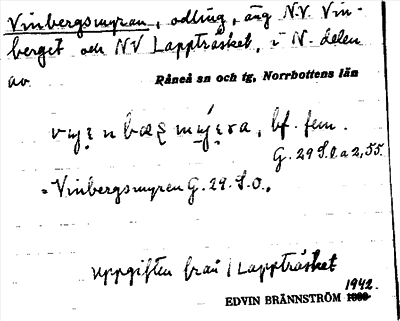 Vinbergsmyran, odling, äng N.V. Vin-
berget och NV Lappträsket, i N. delen
av Råneå sn och tg, Norrbottens län
bf. fem.
G. 29 S.l a 2,55.
"Vinbergsmyren G. 29. S.O.,
Uppgiften från Lappträsket
1942.
EDVIN BRÄNNSTRÖM